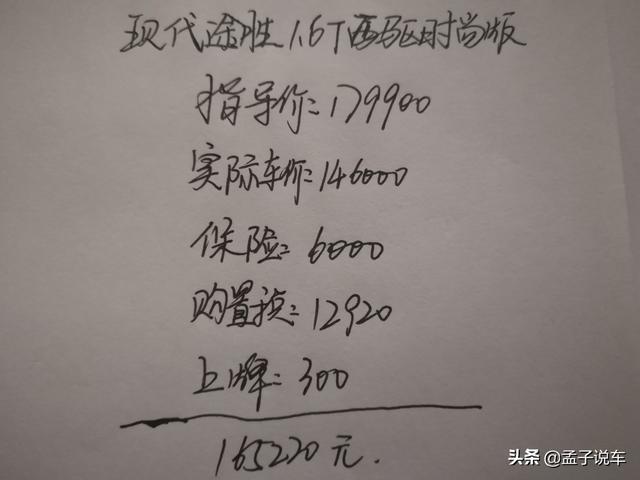 现代途胜1.6T两驱时尚版
指导价：179900
实际车价：146000
保险：6000
购置税：12920
上牌：300
165220元.
头条 @孟子说车